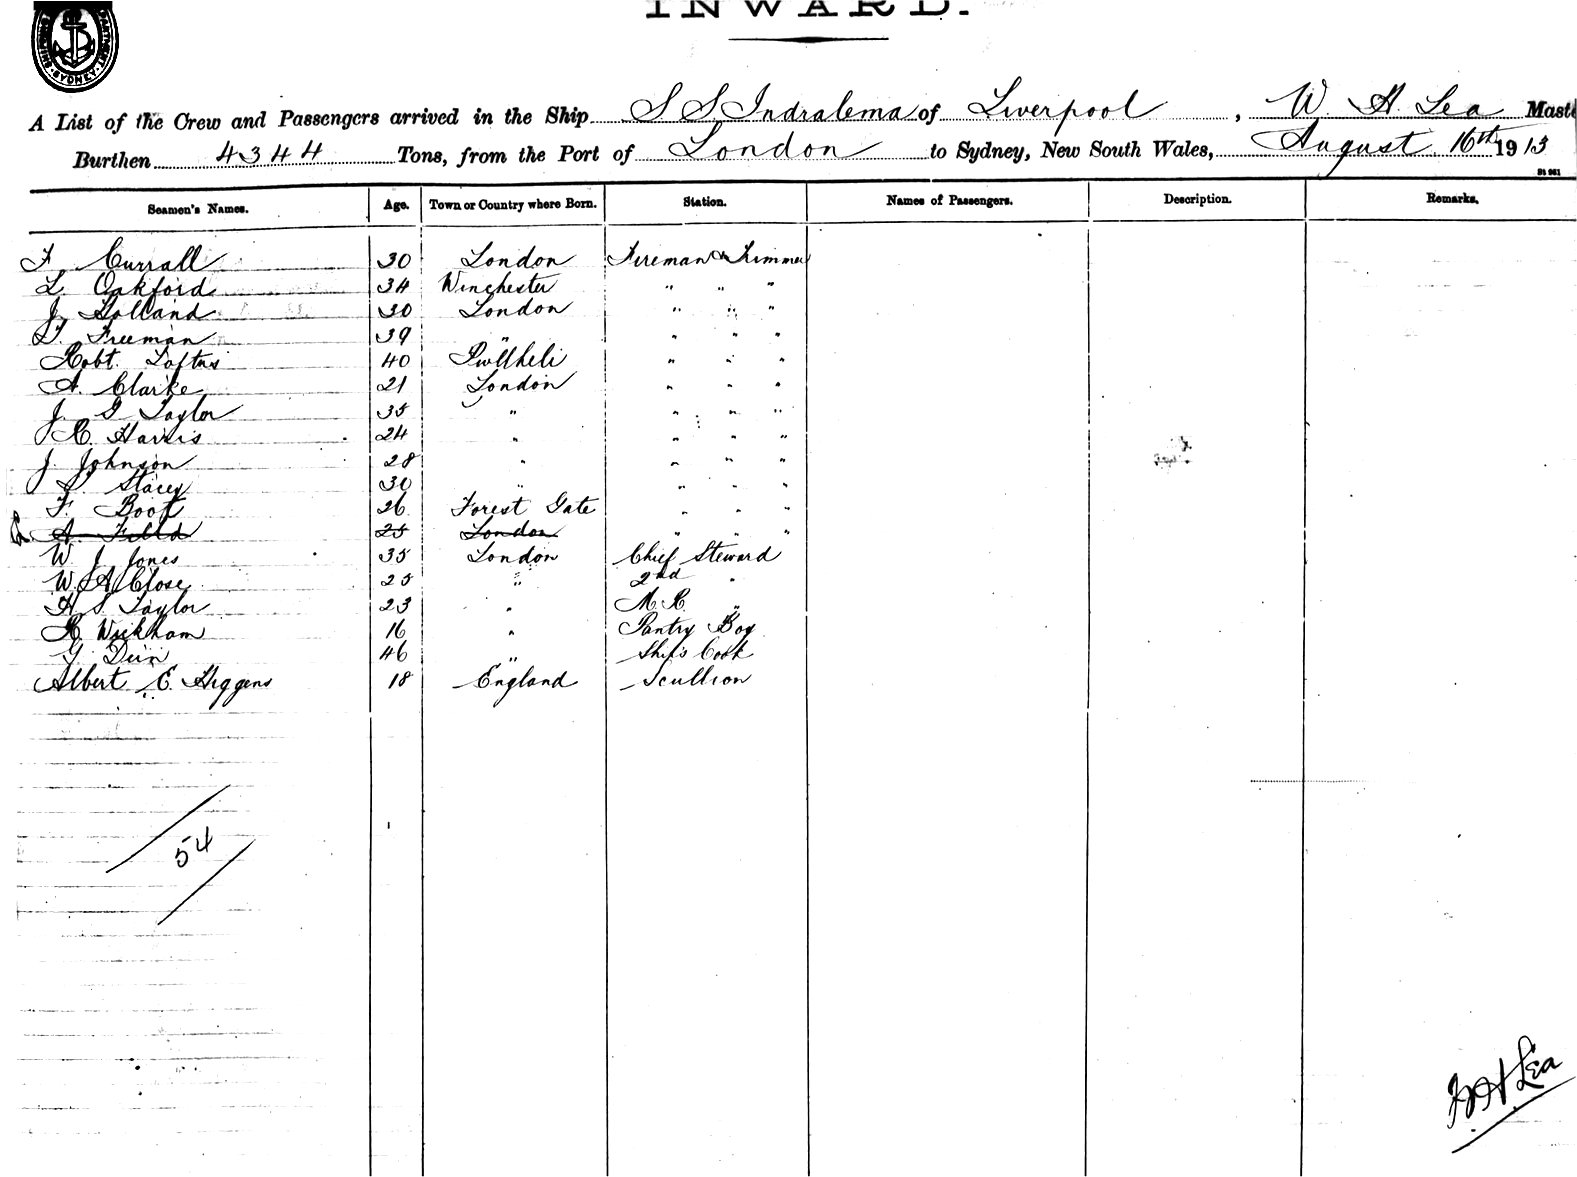 INWARD.
SYDNEY
A List of the Crew and Passengers arrived in the Ship S S Indralema of Liverpool, W H. Lea Maste
Burthen 4344 Tons, from the Port of London to Sydney, New South Wales, August 16th 1913
St 961
Seamen's Names. Age. Town or Country where Born. Station. Names of Passengers. Description. Remarks.
F Currall 30 London Fireman & Trimmer
L. Oakford 34 Winchester " " "
J Holland 30 London " " "
F. Freeman 39 " " " "
Robt. Loftus 40 Pwllheli " " "
A. Clarke 21 London " " "
J. G Taylor 35 " " " "
R. Harris 24 " " " "
J. Johnson 28 " " " "
S. Stacey 30 " " " "
F. Boot 26 Forest Gate " " "
A. Field 25 London " " "
W J Jones 35 London Chief Steward
W. A Close 25 " 2nd "
H S. Taylor 23 " M. R. "
R Wickham 16 " Pantry Boy
G. Dein 46 " Ship's Cook
Albert E. Higgens 18 England Scullion
54
W H Lea